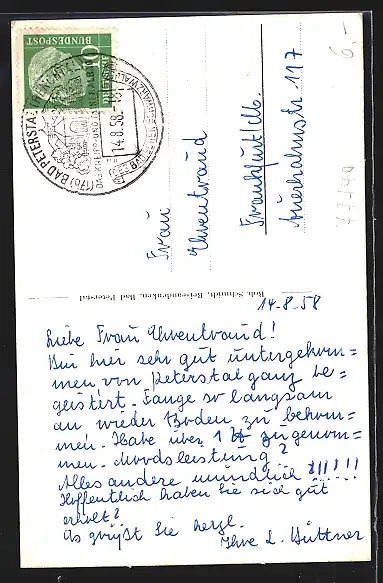 DEUTSCHE
BUNDESPOST
10
(17b) BAD PETERSTAL
14.8.58
6,-
Frau
Ehrentraud
Frankfurt/M.
117
Rob. Schmidt, Reiseandenken, Bad Peterstal
14-8.58
Liebe Frau Ehrentraud!
Bin hier sehr gut untergekom=
men, von Peterstal ganz be=
geistert. Fange so langsam
an wieder Boden zu bekom=
men. Habe über 1 zugenom=
men. Mordsleistung?
Alles andere mündlich !!!!!!
Hoffentlich haben Sie sich gut
erholt?
Es grüßt Sie herzl.
Ihre L. Büttner